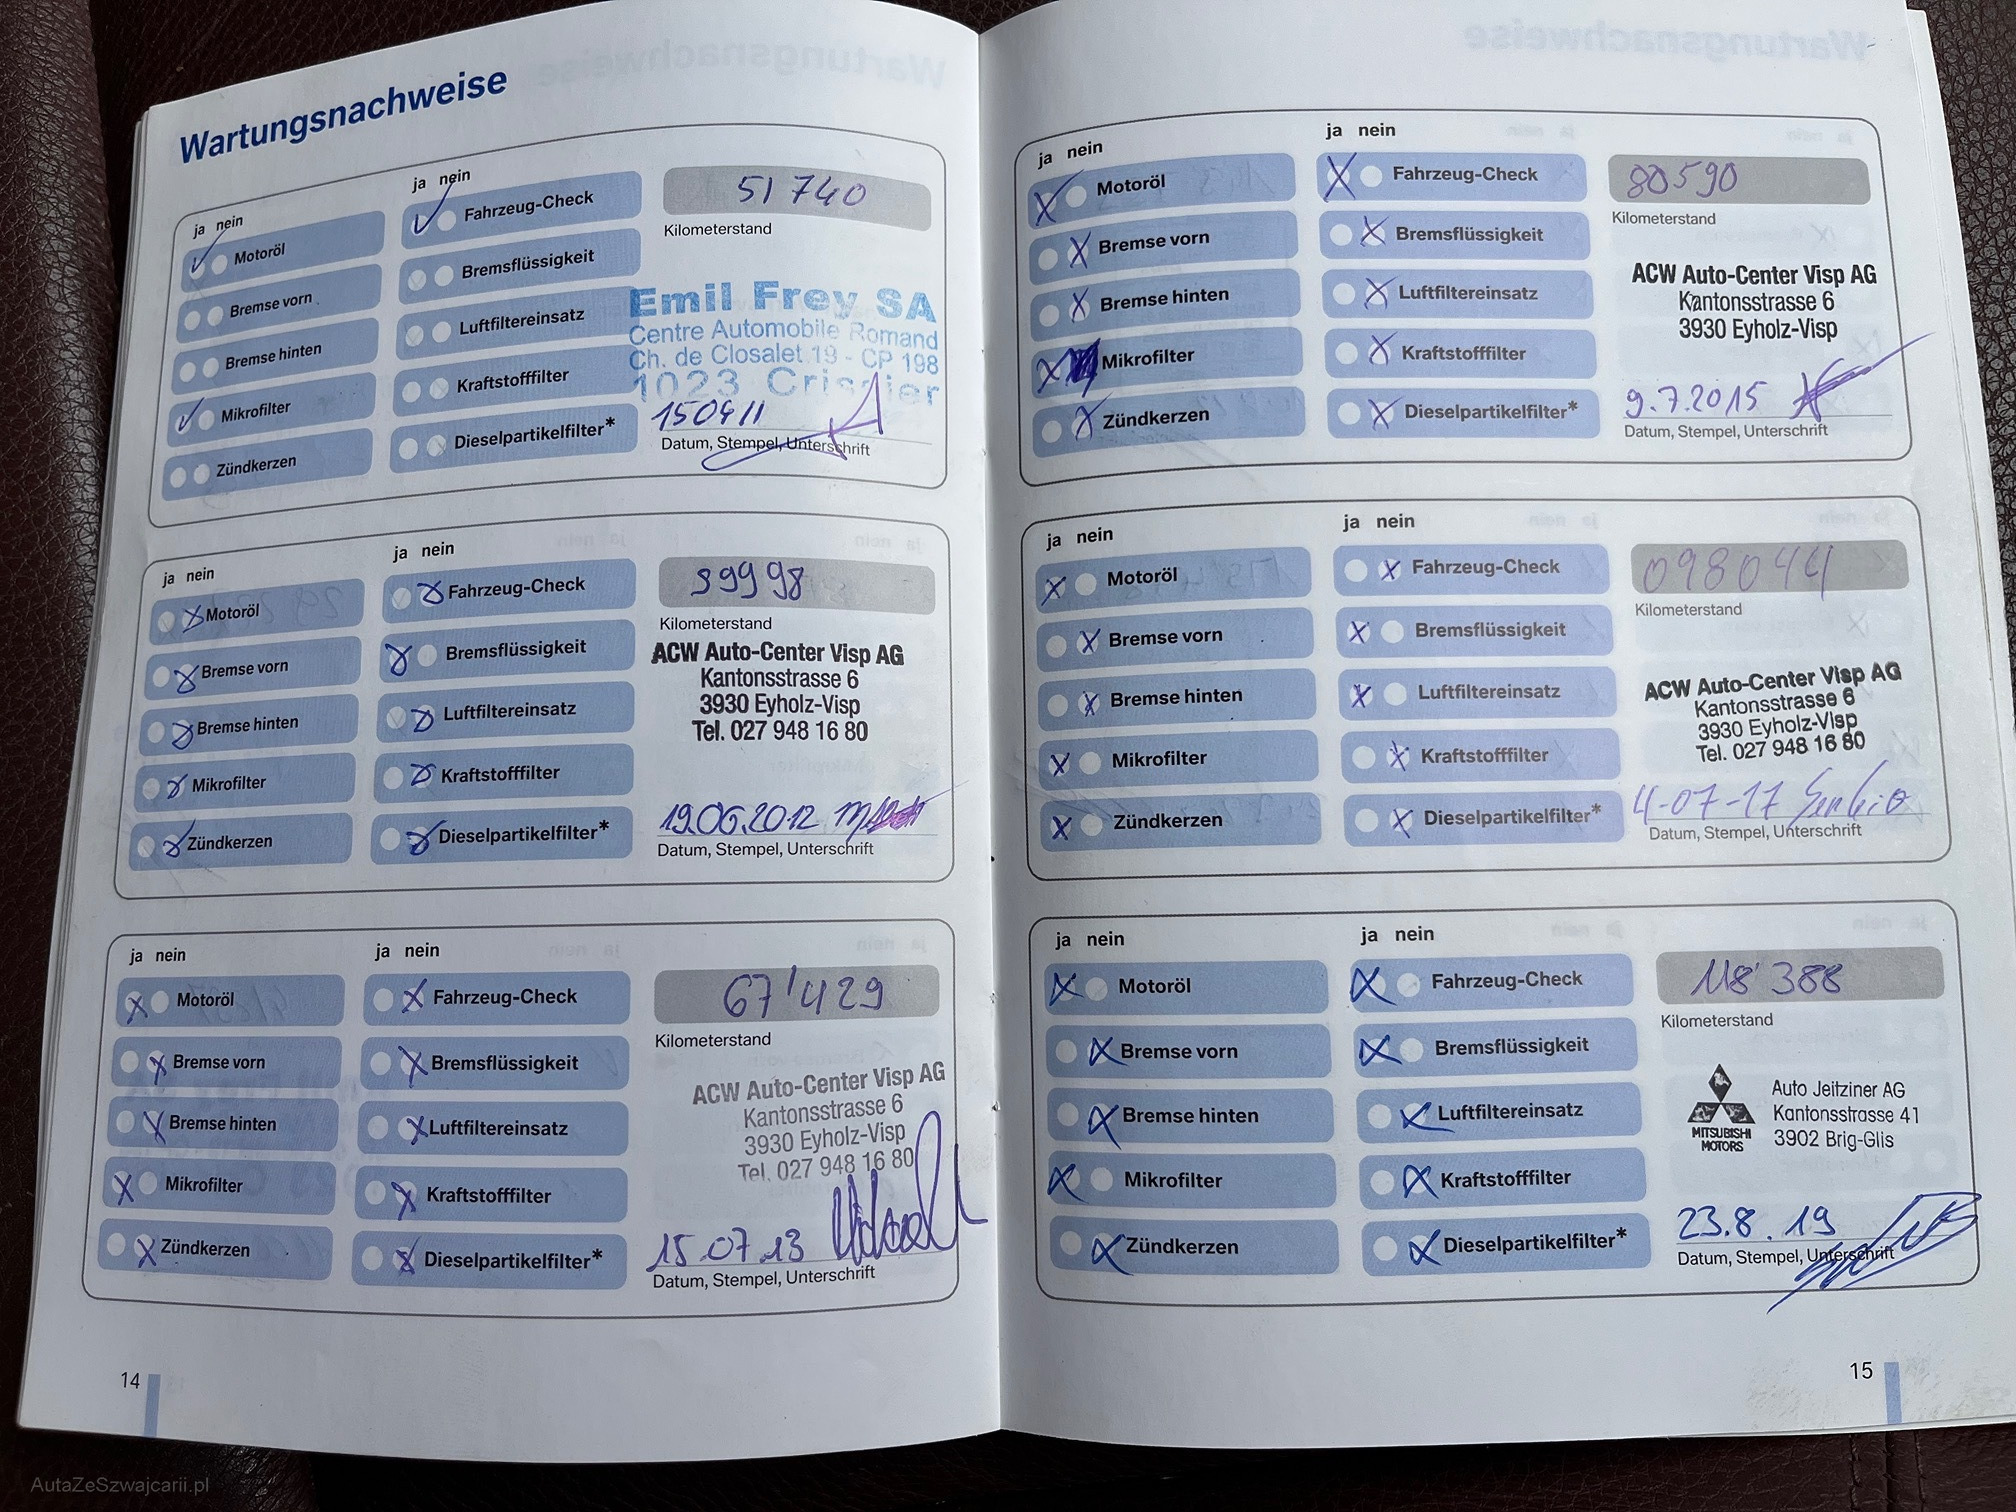 Wartungsnachweise
ja nein
Motoröl
Bremse vorn
Bremse hinten
Mikrofilter
Zündkerzen
ja nein
Fahrzeug-Check
Bremsflüssigkeit
Luftfiltereinsatz
Kraftstofffilter
Dieselpartikelfilter*
51740
Kilometerstand
Emil Frey SA
Centre Automobile Romand
Ch. de Closalet 19 - CP 198
1023 Crissier
150411
Datum, Stempel, Unterschrift
ja nein
Motoröl
Bremse vorn
Bremse hinten
Mikrofilter
Zündkerzen
ja nein
Fahrzeug-Check
Bremsflüssigkeit
Luftfiltereinsatz
Kraftstofffilter
Dieselpartikelfilter*
Kilometerstand
ACW Auto-Center Visp AG
Kantonsstrasse 6
3930 Eyholz-Visp
Tel. 027 948 16 80
19.06.2012
Datum, Stempel, Unterschrift
ja nein
Motoröl
Bremse vorn
Bremse hinten
Mikrofilter
Zündkerzen
ja nein
Fahrzeug-Check
Bremsflüssigkeit
Luftfiltereinsatz
Kraftstofffilter
Dieselpartikelfilter*
67'429
Kilometerstand
ACW Auto-Center Visp AG
Kantonsstrasse 6
3930 Eyholz-Visp
Tel. 027 948 16 80
15.07.13
Datum, Stempel, Unterschrift
14
ja nein
Motoröl
Bremse vorn
Bremse hinten
Mikrofilter
Zündkerzen
ja nein
Fahrzeug-Check
Bremsflüssigkeit
Luftfiltereinsatz
Kraftstofffilter
Dieselpartikelfilter*
80590
Kilometerstand
ACW Auto-Center Visp AG
Kantonsstrasse 6
3930 Eyholz-Visp
9.7.2015
Datum, Stempel, Unterschrift
ja nein
Motoröl
Bremse vorn
Bremse hinten
Mikrofilter
Zündkerzen
ja nein
Fahrzeug-Check
Bremsflüssigkeit
Luftfiltereinsatz
Kraftstofffilter
Dieselpartikelfilter*
098044
Kilometerstand
ACW Auto-Center Visp AG
Kantonsstrasse 6
3930 Eyholz-Visp
Tel. 027 948 16 80
4-07-17
Datum, Stempel, Unterschrift
ja nein
Motoröl
Bremse vorn
Bremse hinten
Mikrofilter
Zündkerzen
ja nein
Fahrzeug-Check
Bremsflüssigkeit
Luftfiltereinsatz
Kraftstofffilter
Dieselpartikelfilter*
118'388
Kilometerstand
MITSUBISHI
MOTORS
Auto Jeitziner AG
Kantonsstrasse 41
3902 Brig-Glis
23.8.19
Datum, Stempel, Unterschrift
15
AutaZeSzwajcarii.pl